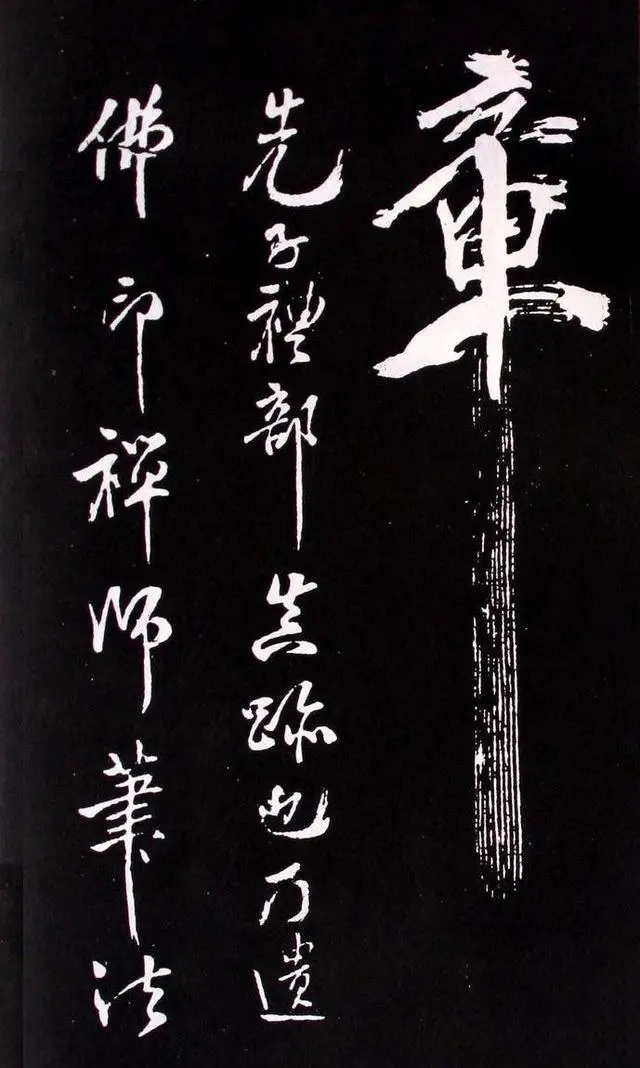 章
先子禮部真跡也乃遺
佛印禪師筆法